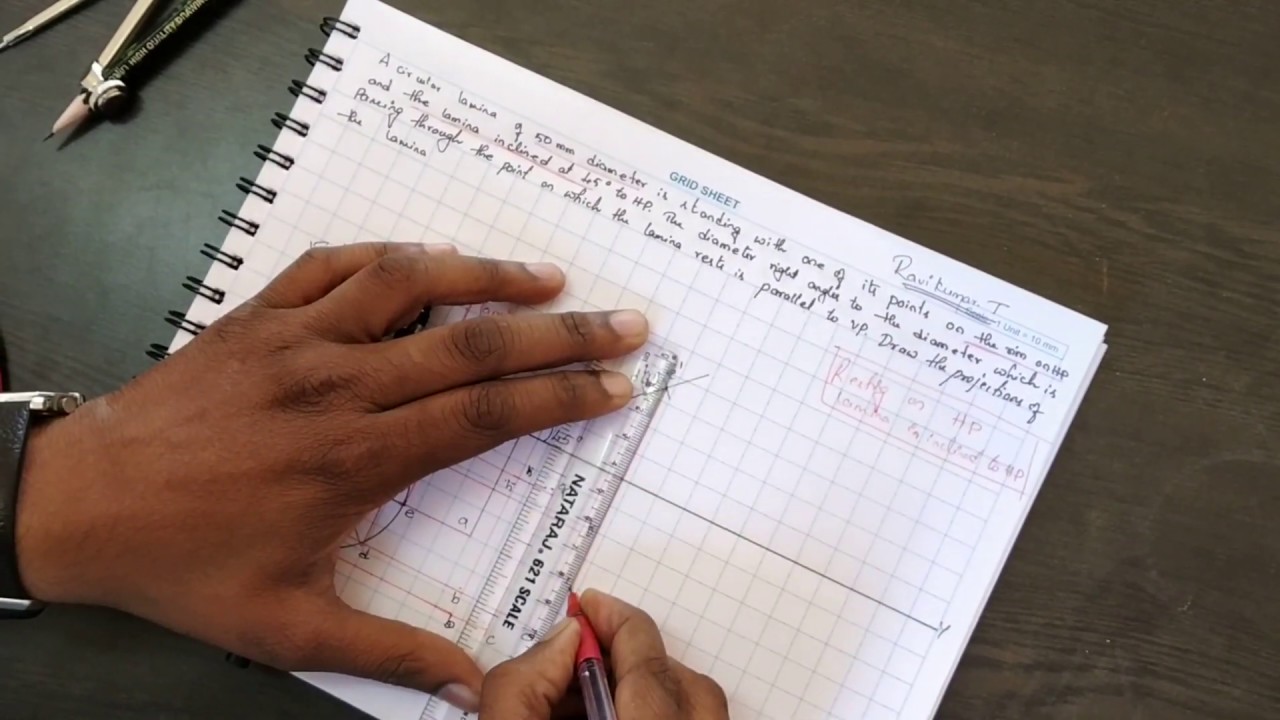 GRID SHEET
Ravikumar T
1 Unit = 10 mm
A circular lamina of 50 mm diameter is standing with one of its points on the rim on HP
and the lamina inclined at 45° to HP. The diameter right angles to the diameter which is
passing through the point on which the lamina rests is parallel to VP. Draw the projections of
the lamina
Resting on HP
lamina is inclined to HP
45
Y
e
a
d
b
c
NATARAJ 621 SCALE